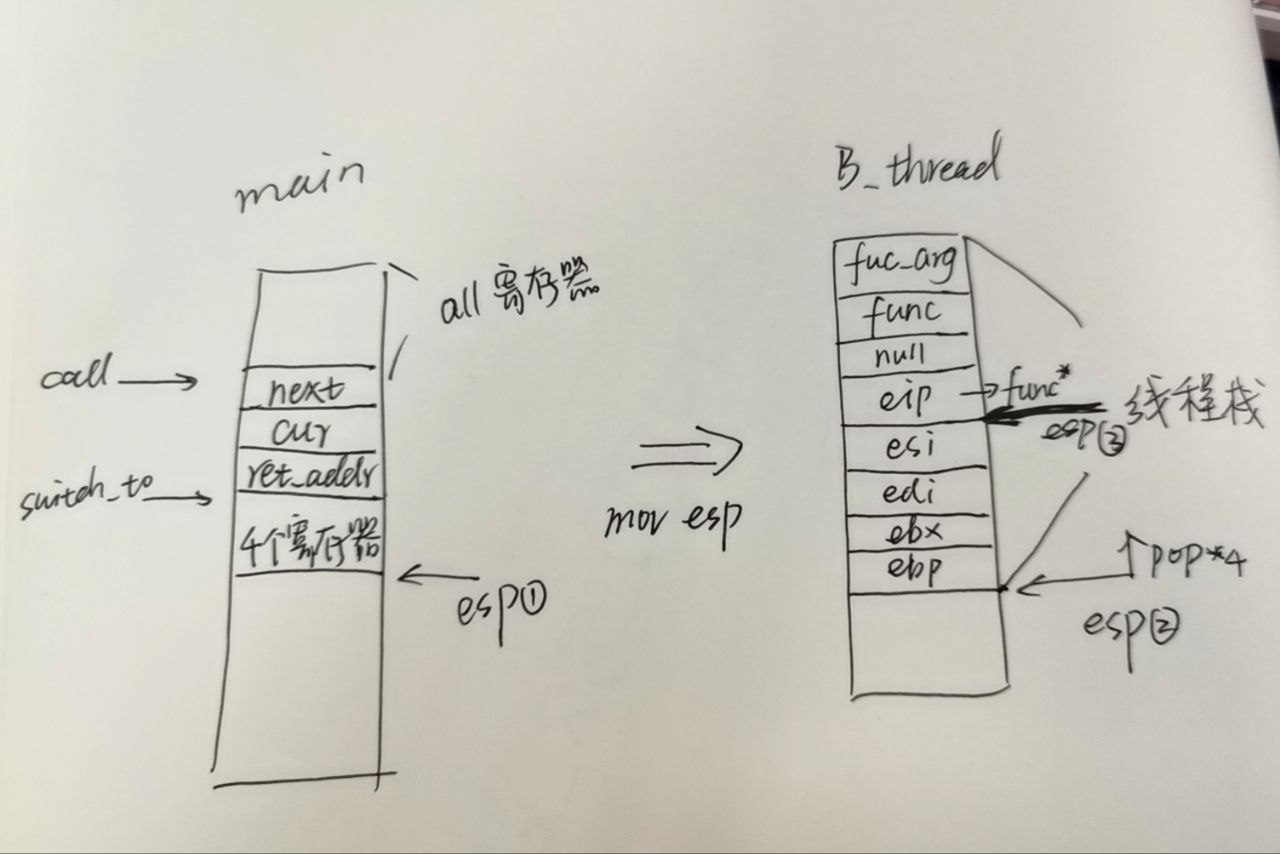 main
all 寄存器
call
next
cur
switch_to
ret_addr
4个寄存器
esp①
mov esp
B_thread
fuc_arg
func
null
eip
func*
esp③
线程栈
esi
edi
ebx
ebp
pop*4
esp②